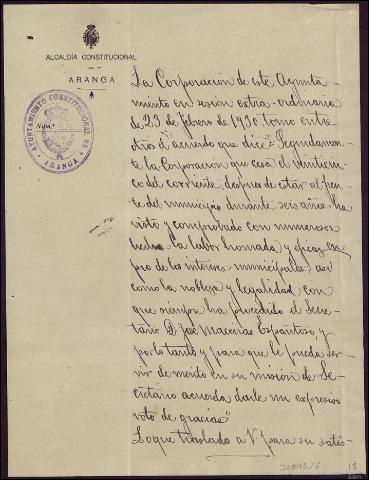 ALCALDÍA CONSTITUCIONAL
DE
ARANGA
AYUNTAMIENTO CONSTITUCIONAL DE ARANGA
Núm.
La Corporación de este Ayunta-
miento en sesión extra-ordinaria
de 23 de febrero de 1930 tomó entre
otros el acuerdo que dice: "Seguidamen-
te la Corporación que cesa el veintiseis
del corriente, despues de estar al fren-
te del municipio durante seis años ha
visto y comprobado con numerosos
hechos la labor honrada y eficaz en
pro de los intereses municipales, asi
como la nobleza y legalidad con
que siempre ha procedido el Secre-
tario D. José Maceiras Espantoso, y
por lo tanto y para que le pueda ser-
vir de merito en su misión de Se-
cretario acuerda darle un expresivo
voto de gracias"
Lo que traslado a V. para su satis-
32843/6
18